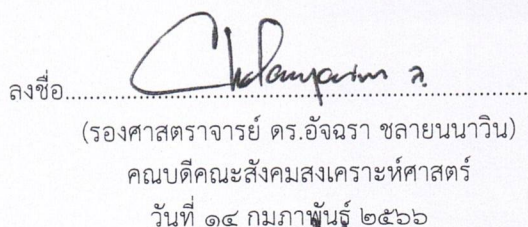 ลงชื่อ
(รองศาสตราจารย์ ดร.อัจฉรา ชลายนนาวิน)
คณบดีคณะสังคมสงเคราะห์ศาสตร์
วันที่ ๑๔ กุมภาพันธ์ ๒๕๖๖